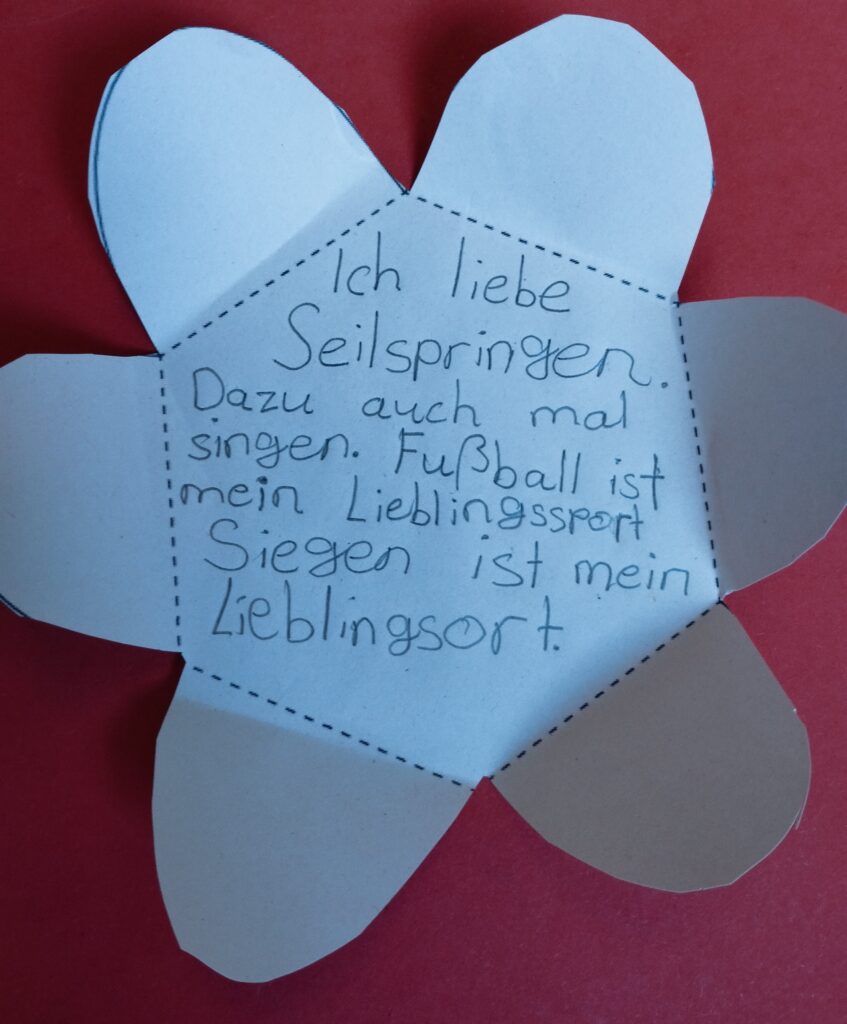 Ich liebe
Seilspringen.
Dazu auch mal
singen. Fußball ist
mein Lieblingssport
Siegen ist mein
Lieblingsort.